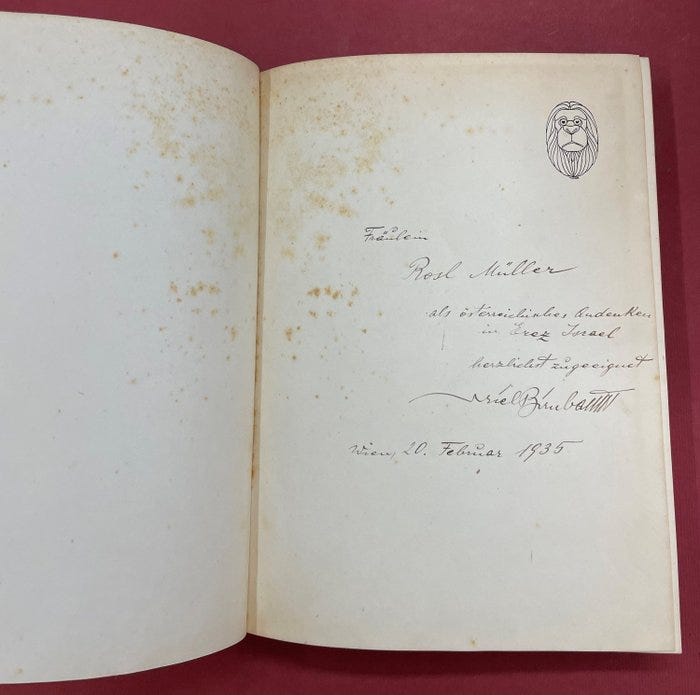 Fräulein
Rosl Müller
als österreichisches Andenken
in Erez Israel
herzlichst zugeeignet
Uriel Birnbaum
Wien, 20. Februar 1935